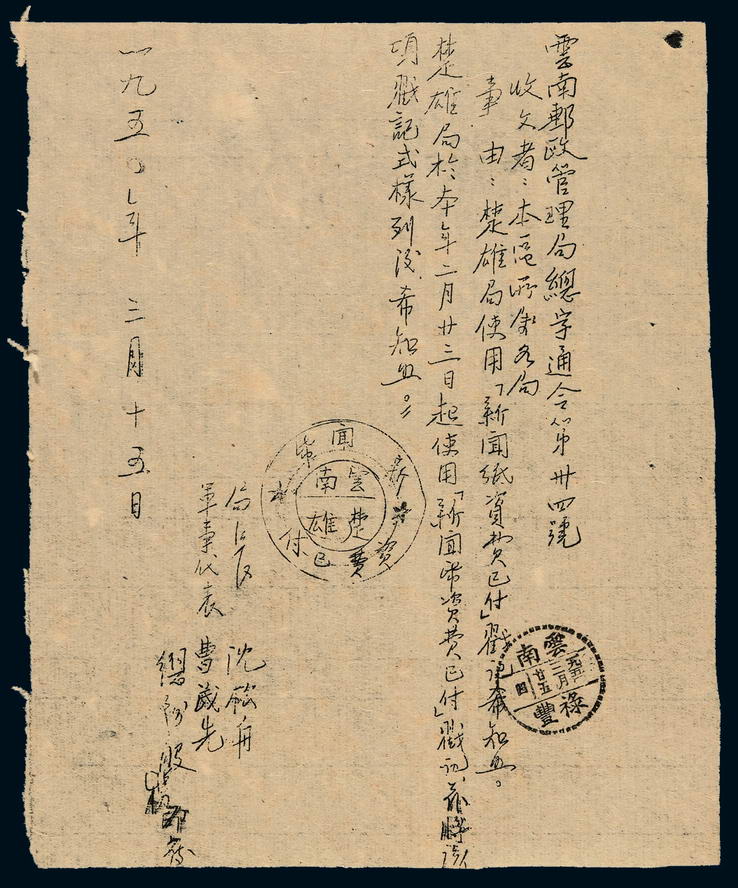 雲南郵政管理局總字通令第卅四號
收文者：本區所屬各局
事由：楚雄局使用「新聞紙資費已付」戳記希知照。
楚雄局於本年二月廿三日起使用「新聞帋資費已付」戳記，茲將該
項戳記式樣列後希知照。
新聞帋資費已付
雲南
楚雄
雲南
一九五〇年
三月
廿五
祿豐
局長 沈 舟
軍事代表 曹 先
總務股
一九五〇年 三月十五日